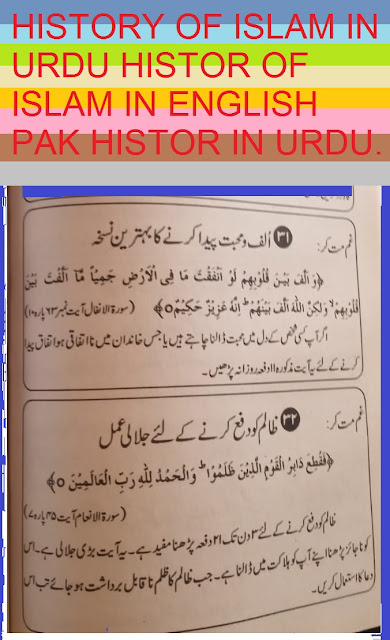 HISTORY OF ISLAM IN
URDU HISTOR OF
ISLAM IN ENGLISH
PAK HISTOR IN URDU.
غم مت کر: ۳۱ اُلفت ومحبت پیدا کرنے کا بہترین نسخہ
﴿وَاَلَّفَ بَيْنَ قُلُوْبِهِمْ لَوْ اَنْفَقْتَ مَا فِى الْاَرْضِ جَمِيْعًا مَّا اَلَّفْتَ بَيْنَ
قُلُوْبِهِمْ وَلٰكِنَّ اللّٰهَ اَلَّفَ بَيْنَهُمْ اِنَّهٗ عَزِيْزٌ حَكِيْمٌ﴾ (سورۃ الانفال آیت نمبر ۶۳ پارہ ۱۰)
اگر آپ کسی شخص کے دل میں محبت ڈالنا چاہتے ہیں یا جس خاندان میں نا اتفاقی ہو اتفاق پیدا
کرنے کے لئے یہ آیت مذکورہ ۱۱ دفعہ روزانہ پڑھیں۔
غم مت کر: ۳۲ ظالم کو دفع کرنے کے لئے جلالی عمل
﴿فَقُطِعَ دَابِرُ الْقَوْمِ الَّذِيْنَ ظَلَمُوْا وَالْحَمْدُ لِلّٰهِ رَبِّ الْعَالَمِيْنَ﴾
(سورۃ الانعام آیت ۴۵ پارہ ۷)
ظالم کو دفع کرنے کے لئے ۳ دن تک ۲۱ دفعہ پڑھنا مفید ہے۔ یہ آیت بڑی جلالی ہے۔ اس
کو ناجائز پڑھنا اپنے آپ کو ہلاکت میں ڈالنا ہے۔ جب ظالم کا ظلم ناقابل برداشت ہو جائے تب اس
دعا کا استعمال کریں۔